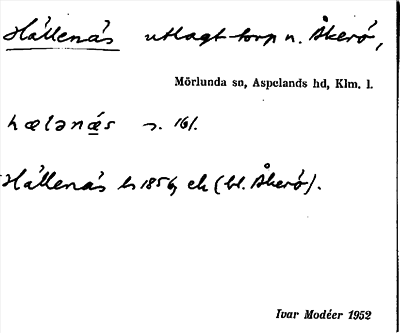 Hållenäs utlagt torp u. Åkerö,
Mörlunda sn, Aspelands hd, Klm. l.
hælənǽs s. 161.
Hållenäs hs 1856, ek (bl. Åkerö).
Ivar Modéer 1952